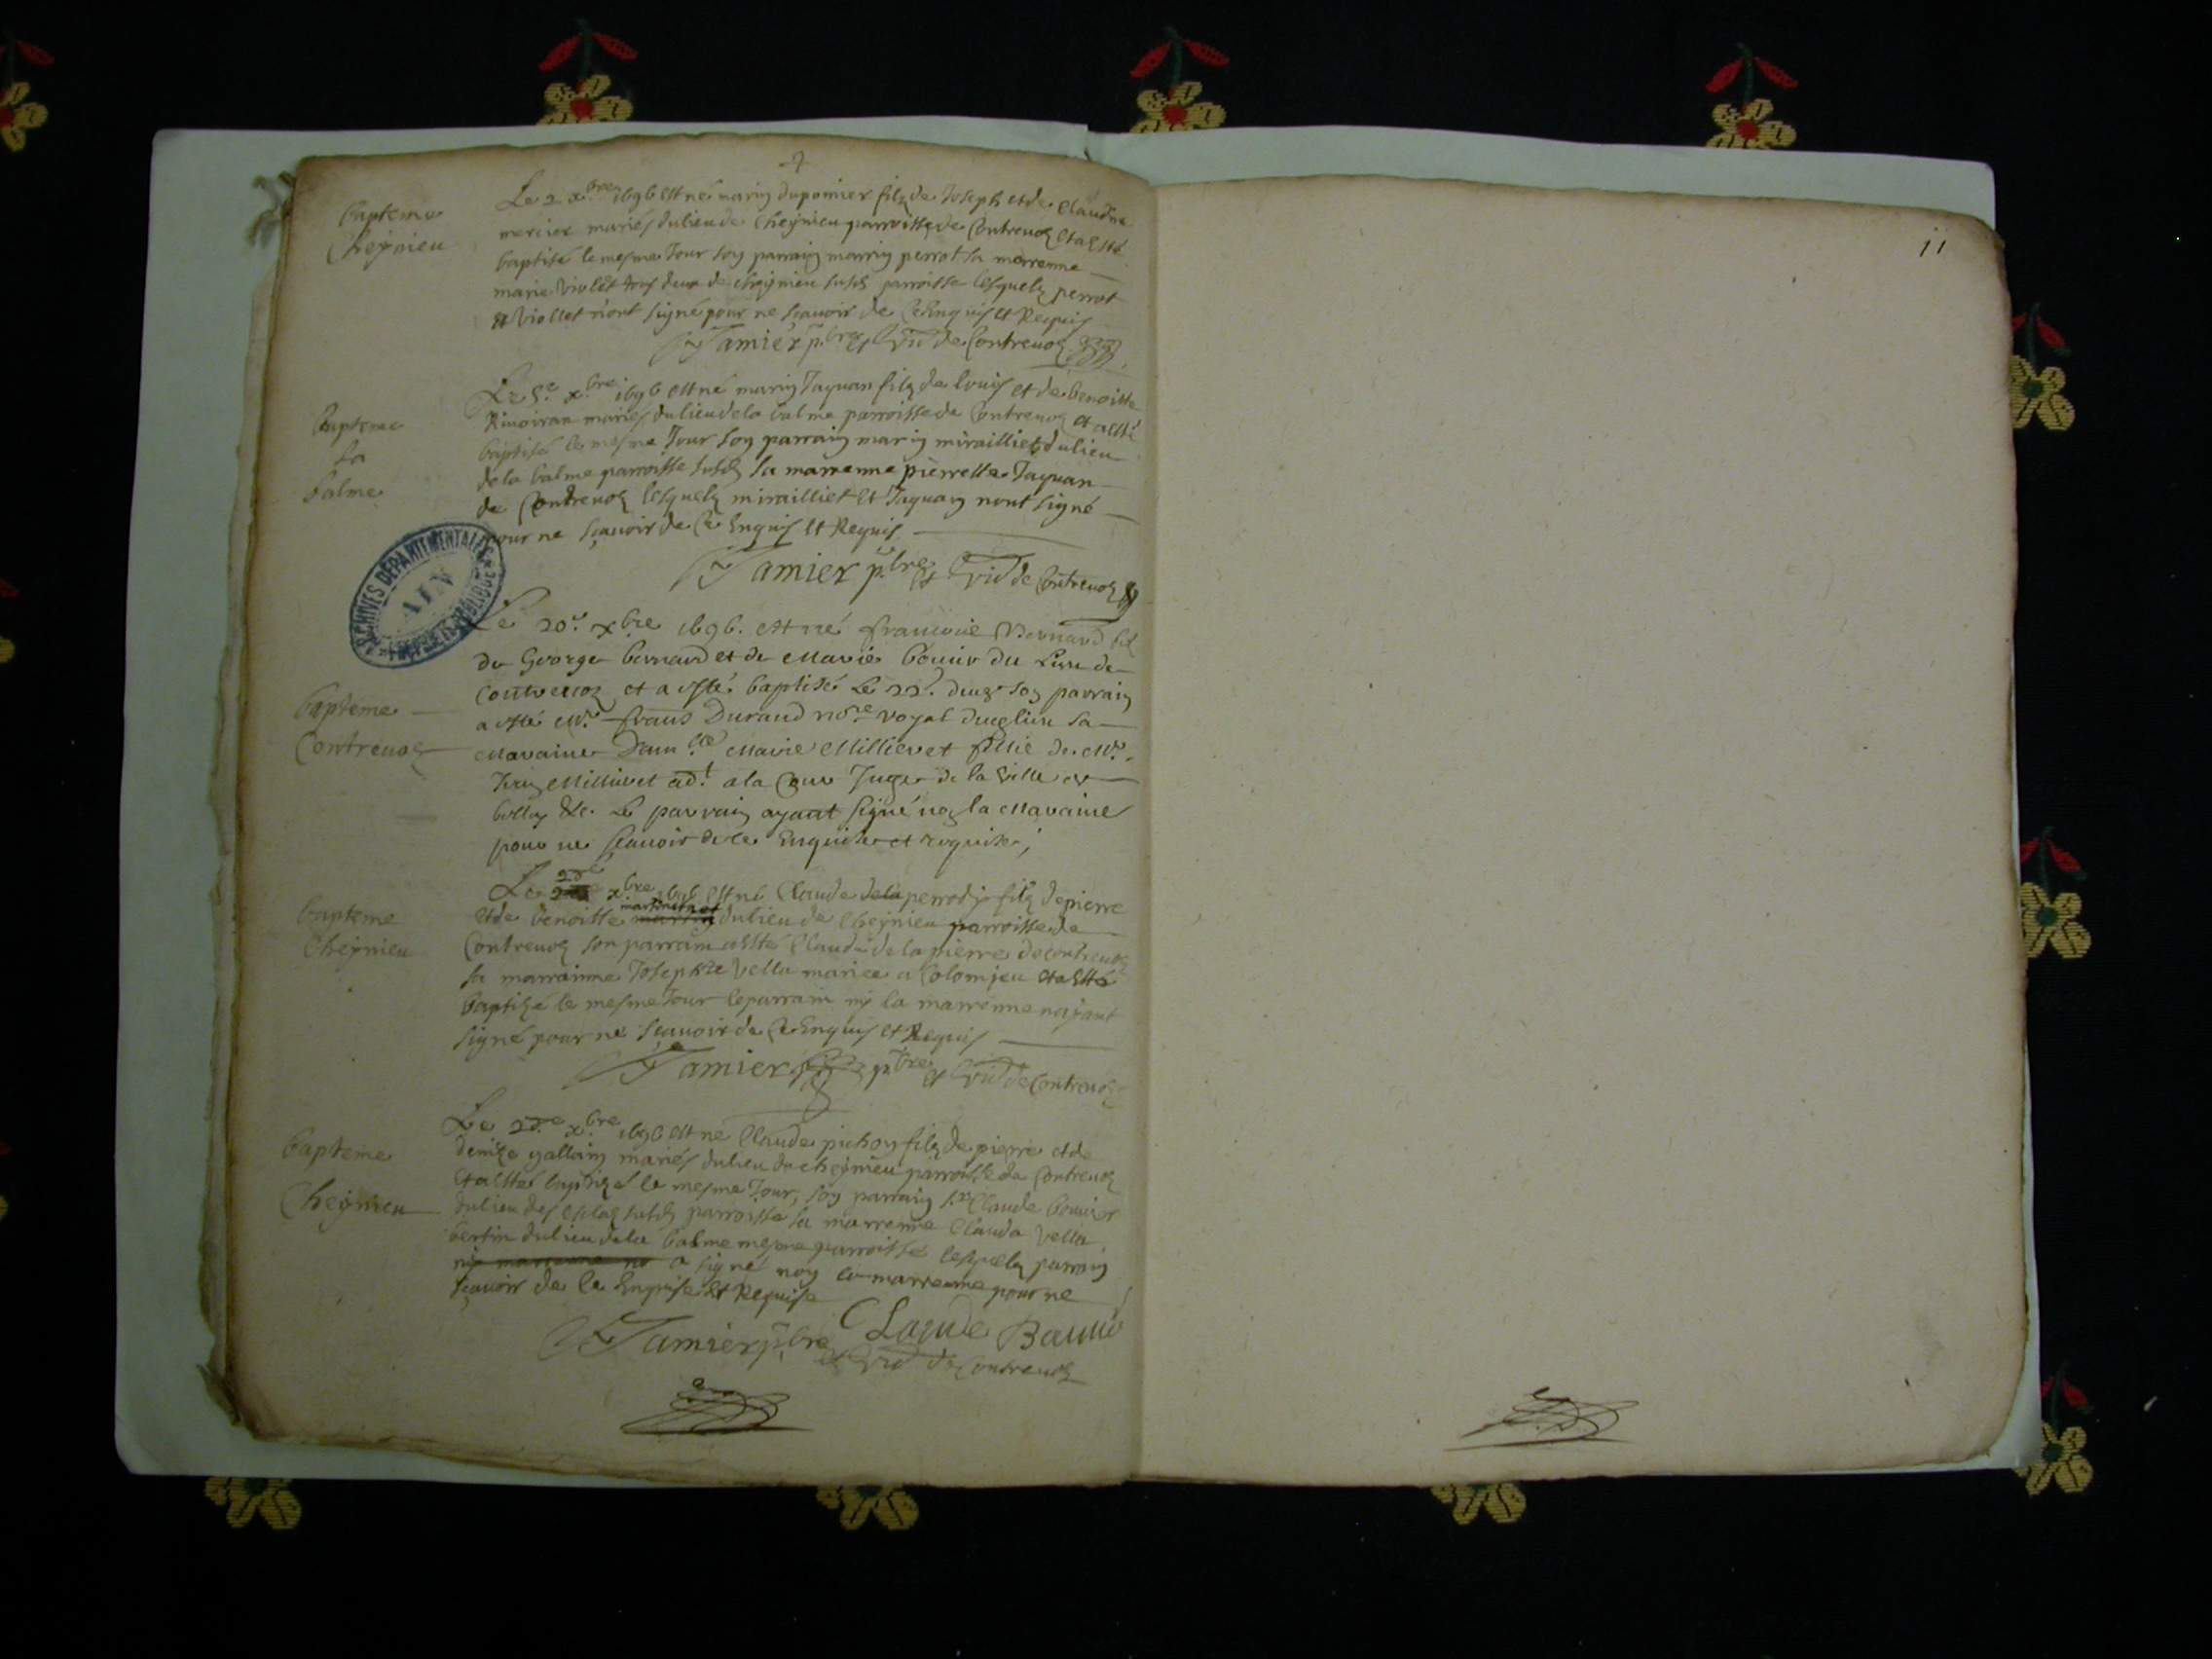 bapteme
Cheynieu
Le 2 xbre 1696 est né marin dupomier filz de Joseph et de Claudine
mercier mariés du lieu de Cheynieu parroisse de Contrevoz et a esté
baptisé le mesme Jour son parrain marin perrot sa marrenne
marie violet tous deux de cheynieu susde parroisse lesquelz perrot
et Viollet n'ont signé pour ne scauoir de ce Enquis et Requis
Tamier pbre de Contrevoz
bapteme
la
balme
Le 5e xbre 1696 est né marin Jaquan filz de louis et de benoitte
mariés du lieu de la balme parroisse de Contrevoz et a esté
baptisé le mesme Jour son parrain marin mirailliet du lieu
de la balme parroisse susde sa marrenne pierrette Jaquan
de Contrevoz lesquelz mirailliet et Jaquan nont signé
pour ne sçauoir de ce Enquis et Requis
Tamier pbre de Contrevoz
ARCHIVES DÉPARTEMENTALES
AIN
bapteme
Contrevoz
Le 20e xbre 1696. est né francoise Bernard
de George bernard et de Marie bouuier du Lieu de
Contrevoz et a esté baptisé Le 22e son parrain
a esté Mre Durand nore royal sa
Maraine Damlle Marie Millieret fillie de Mre
Millieret adt a la Cour Juge de la ville de
belley &c. Le parrain ayant signé non la Maraine
pour ne scauoir de ce Enquise et requise
bapteme
Cheynieu
Le xbre 1696 est né Claude dela perrody filz de pierre
et de benoitte du lieu de Cheynieu parroisse de
Contrevoz son parrain a esté Claude de la pierre de contrevoz
sa marrainne Josephte Vella mariee a Colomieu et a esté
baptizé le mesme Jour le parrain ny la marrenne nayant
signé pour ne scauoir de ce Enquis et Requis
Tamier pbre de Contrevoz
bapteme
Cheynieu
Le xbre 1696 est né Claude pichon filz de pierre et de
denize gallin mariés du lieu de cheynieu parroisse de Contrevoz
et a esté baptizé le mesme Jour, son parrain sr Claude bouuier
du lieu des susde parroisse sa marrenne Clauda Vella
bertin du lieu de la balme mesme parroisse lesquelz parrain
a signé non la marrenne pour ne
sçauoir de ce Enquise et Requise
Claude
Tamier pbre
de Contrevoz
11